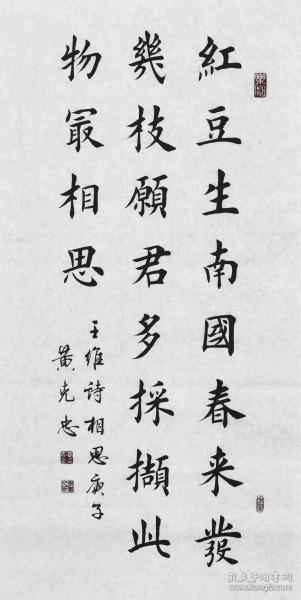 紅豆生南國春来發
幾枝願君多採擷此
物冣相思
王維詩相思庚子
黄克忠
孔夫子旧书网